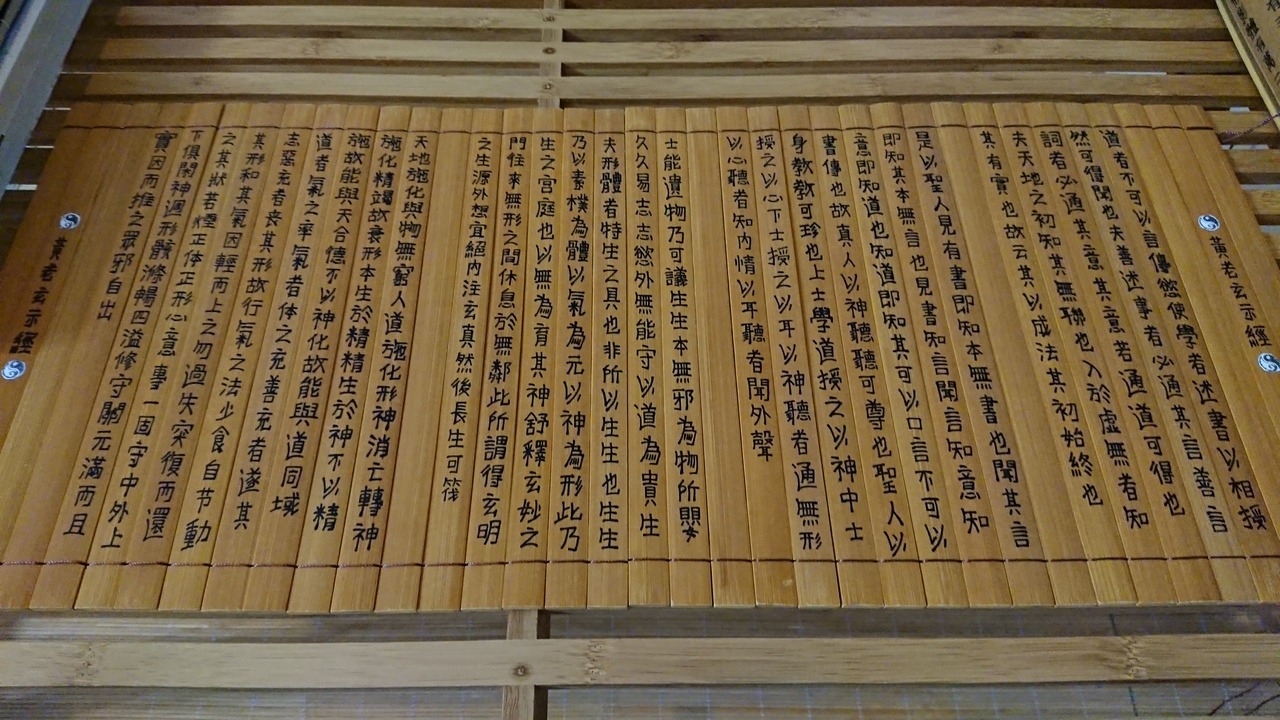 黃老玄示經
道者不可以言傳慾使學者述書以相授
然可得聞也夫善述事者必通其言善言
詞者必通其意其意若通道可得也
夫天地之初知其無聯也入於虛無者知
其有實也故云其以成法其初始終也
是以聖人見有書即知本無書也聞其言
即知其本無言也見書知言聞言知意知
意即知道也知道即知其可以口言不可以
書傳也故真人以神聽聽可尊也聖人以
身教教可珍也上士學道授之以神中士
授之以心下士授之以耳以神聽者通無形
以心聽者知內情以耳聽者聞外聲
士能遺物乃可議生生本無邪為物所嬰
久久易志志慾外無能守以道為貴生
夫形體者特生之具也非所以生生也生生
乃以素樸為體以氣為元以神為形此乃
生之宮庭也以無為育其神舒釋玄妙之
門往來無形之間休息於無鄰此所謂得玄明
之生源外想宜絕內注玄真然後長生可筏
天地施化與物無窮人道施化形神消亡轉神
施化精竭故衰形本生於精精生於神不以精
施故能與天合德不以神化故能與道同域
道者氣之率氣者體之充善充者遂其
志惡充者喪其形故行氣之法少食自节動
其形和其氣因輕而上之勿過失突復而還
之其狀若煙正体正形心意專一固守中外上
下俱閑神週形骸滌暢四溢修守關元滿而且
實因而推之眾邪自出
黃老玄示經